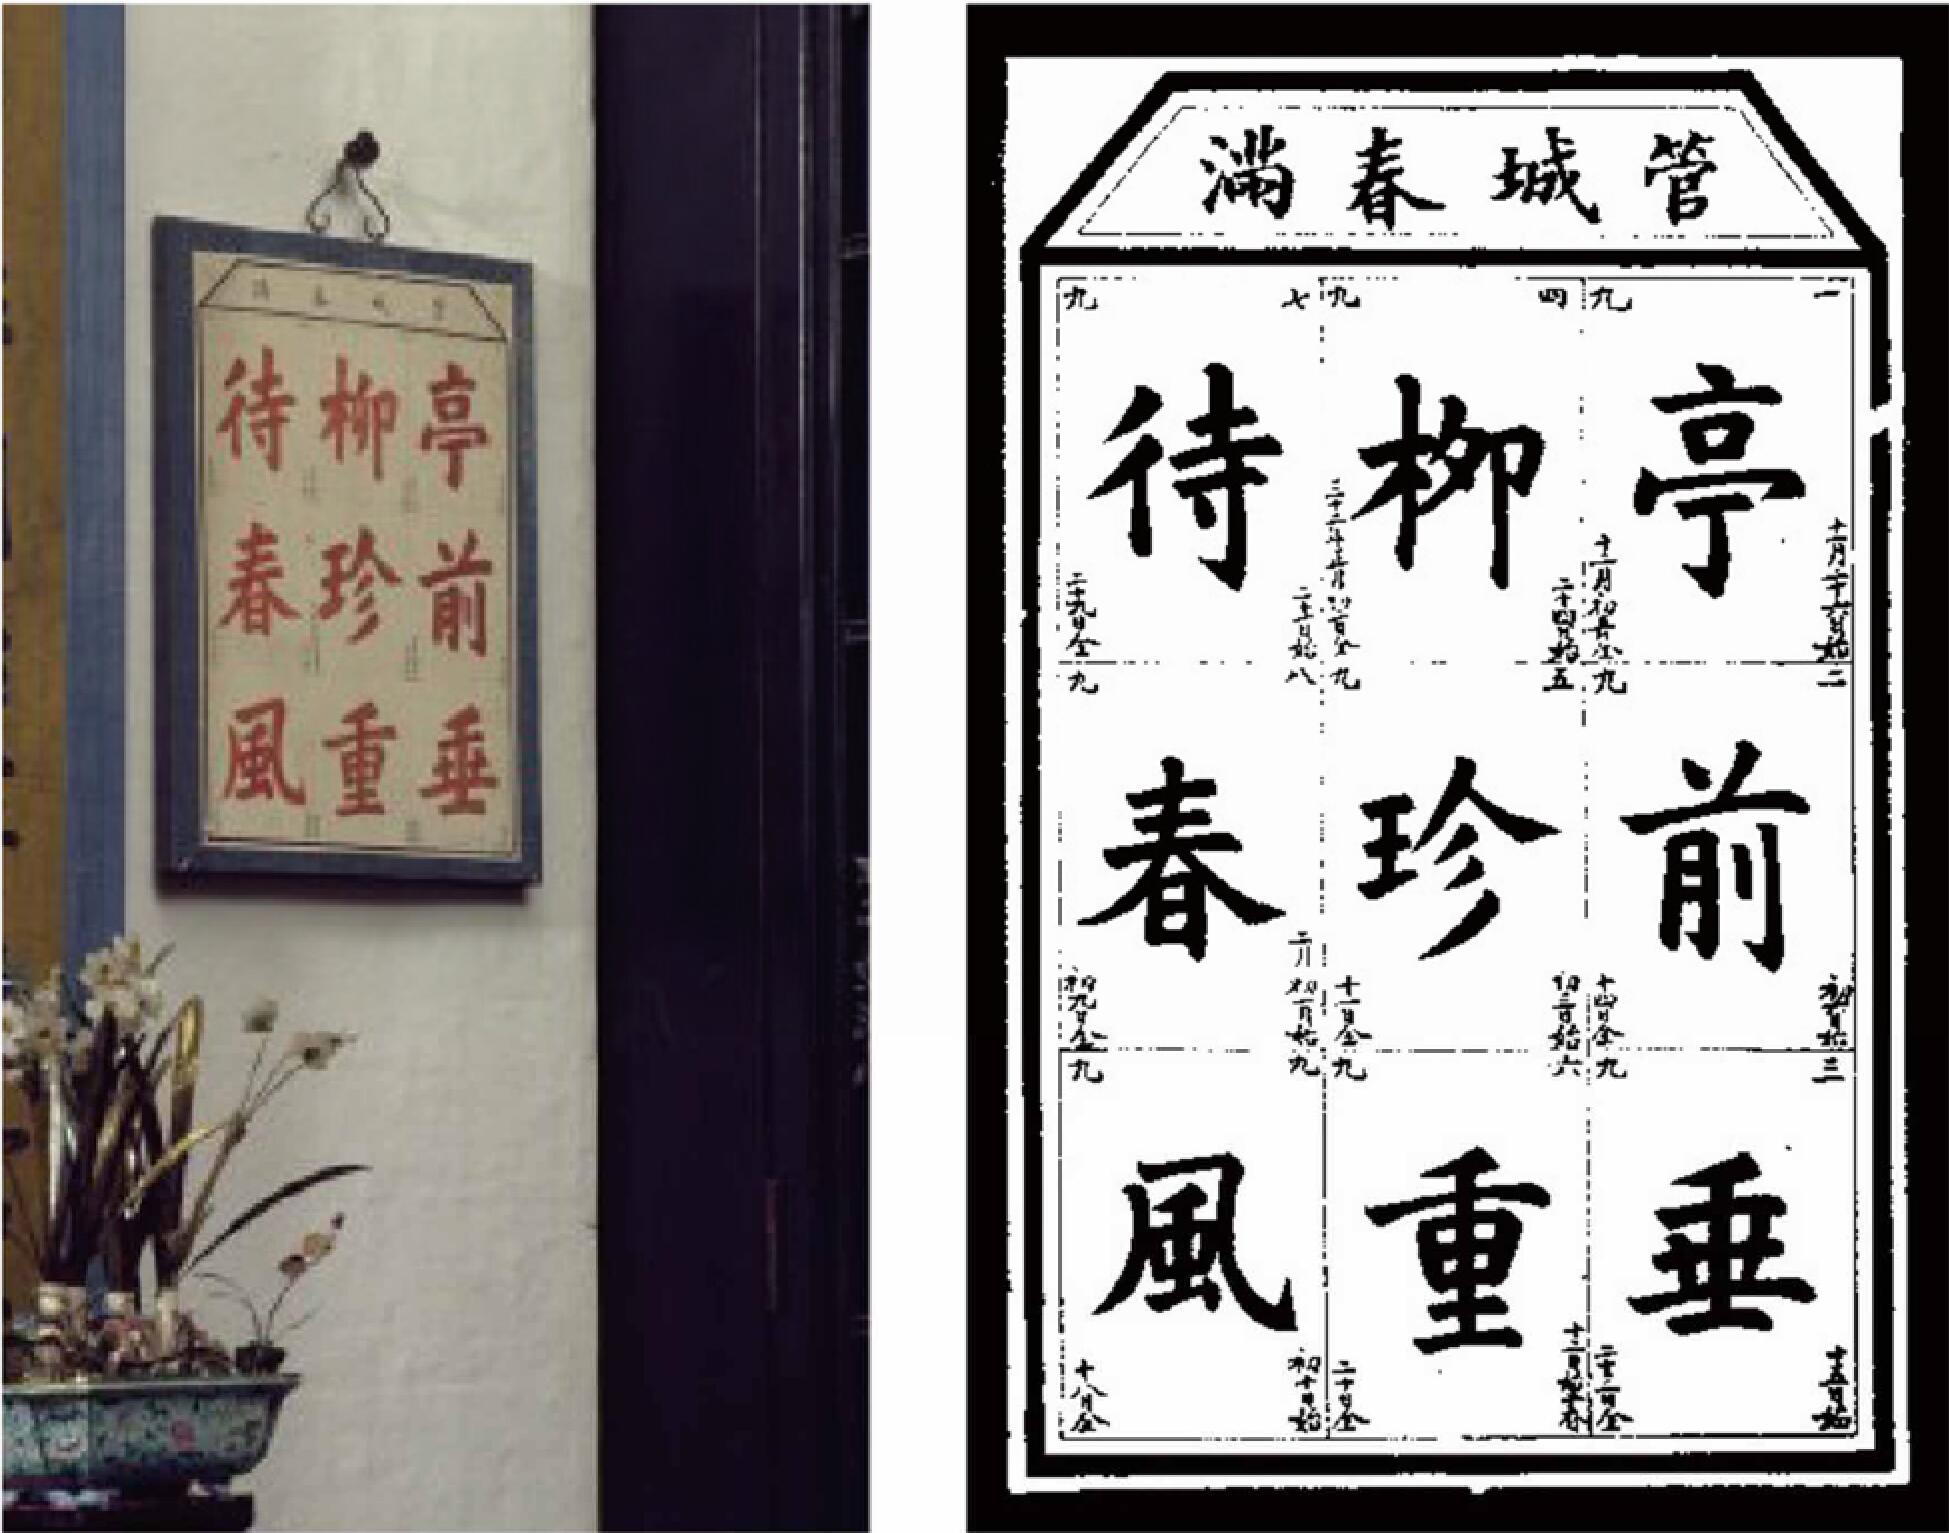 亭前垂
柳珍重
待春風
管城春滿
一九
亭
十一月二十六日始
十二月初五日全
二九
前
初六日始
十四日全
三九
垂
十五日始
二十三日全
四九
柳
二十四日始
三十二年正月初二日全
五九
珍
初三日始
十一日全
六九
重
十二日立春
二十日全
七九
待
二十一日始
二十九日全
八九
春
二月初一日始
初九日全
九九
風
初十日始
十八日全